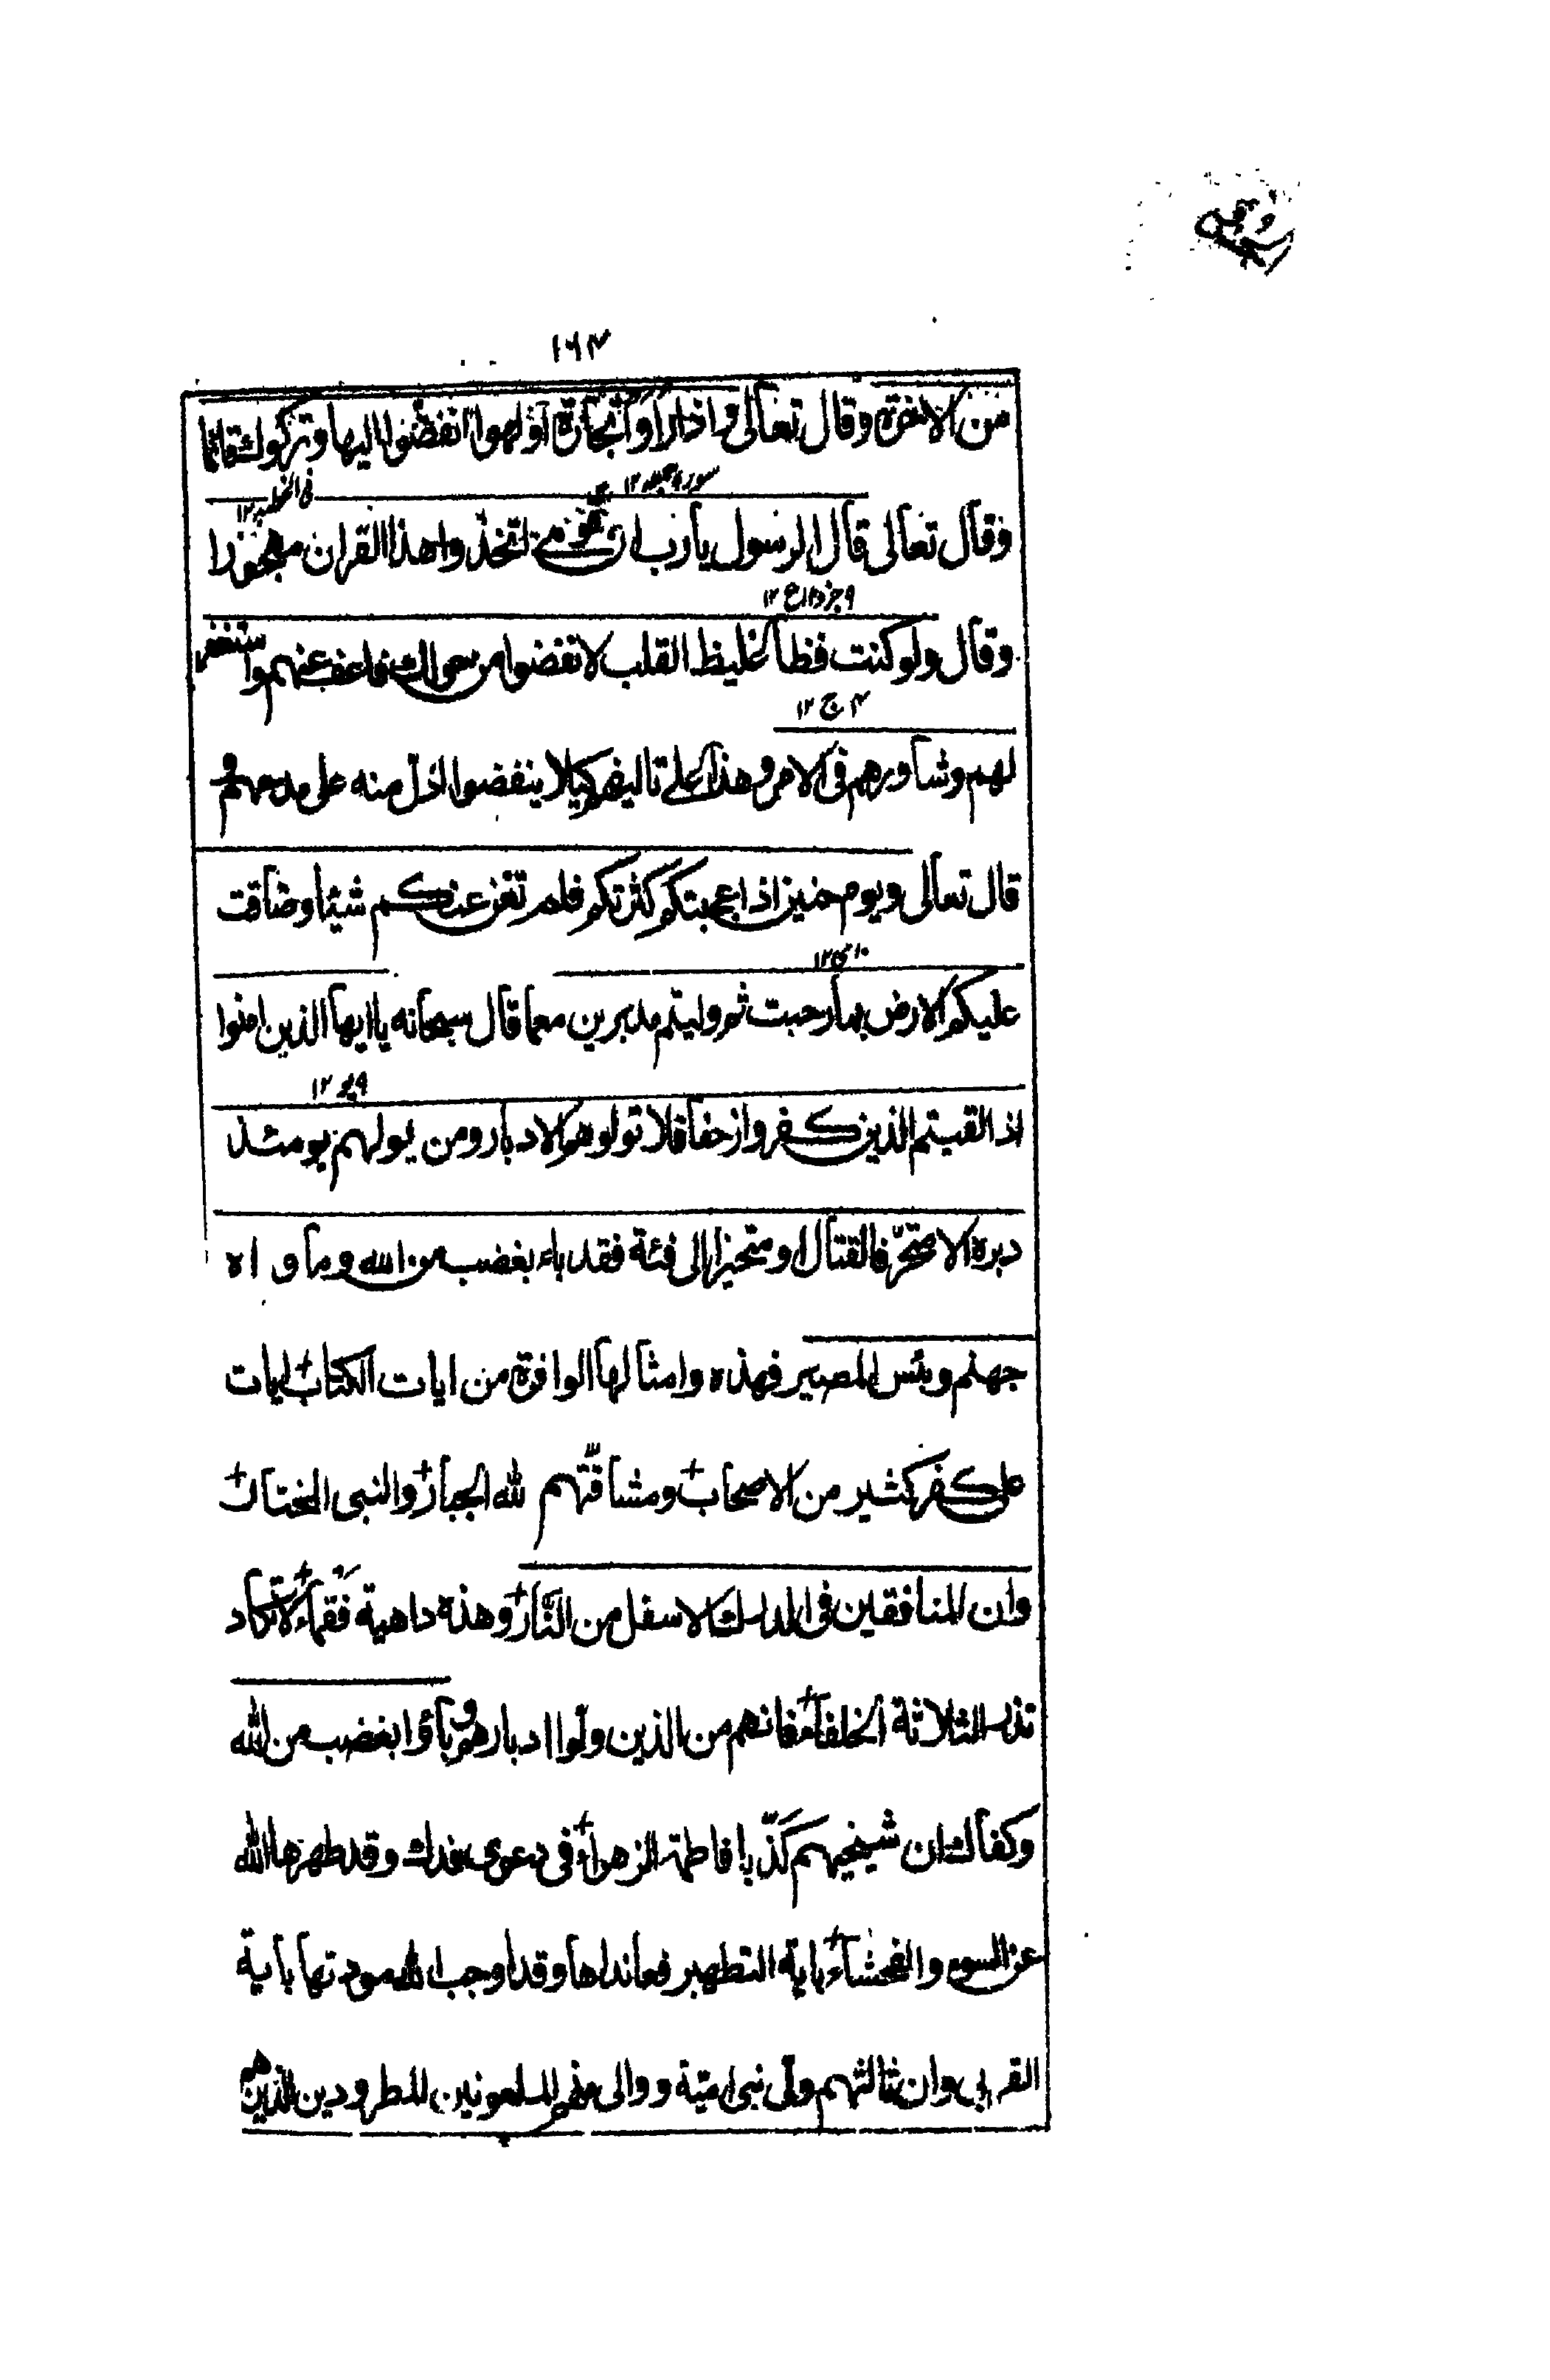 ١٦٣
من الاخرة وقال تعالى واذا راوا تجارة او لهوا انفضوا اليها وتركوك قائما
سورة جمعه ١٢
فى الخطبه ١٢
وقال تعالى قال الرسول يا رب ان قومى اتخذوا هذا القران مهجورا
١٢
وقال ولو كنت فظا غليظ القلب لانفضوا من حولك فاعف عنهم واستغفر
٤ ج ١٢
لهم وشاورهم فى الامر وهذا على تاليفهم كيلا ينفضوا ادل منه على مدحهم و
قال تعالى ويوم حنين اذ اعجبتكم كثرتكم فلم تغن عنكم شيئا وضاقت
١٢
عليكم الارض بما رحبت ثم وليتم مدبرين معما قال سبحانه يا ايها الذين امنوا
١٢
اذا لقيتم الذين كفروا زحفا فلا تولوهم الادبار ومن يولهم يومئذ
دبره الا متحرفا لقتال او متحيزا الى فئة فقد باء بغضب من الله وماواه
جهنم وبئس المصير فهذه وامثالها الوافرة من ايات الكتاب ايات
على كفر كثير من الاصحاب ومشاقّتهم لله الجبار والنبى المختار
وان المنافقين فى الدرك الاسفل من النّار وهذه داهية فقماء لا تكاد
تذر الثلاثة الخلفاء فانهم من الذين ولّوا ادبارهم وباؤا بغضب من الله
وكفاك ان شيخيهم كذّبا فاطمة الزهراء فى دعوى فدك وقد طهرها الله
عن السوء والفحشاء باية التطهير فعانداها وقد اوجب الله مودتها باية
القربى وان ثالثهم ولّى بنى اميّة ووالى منهم الملعونين المطرودين الذين هم